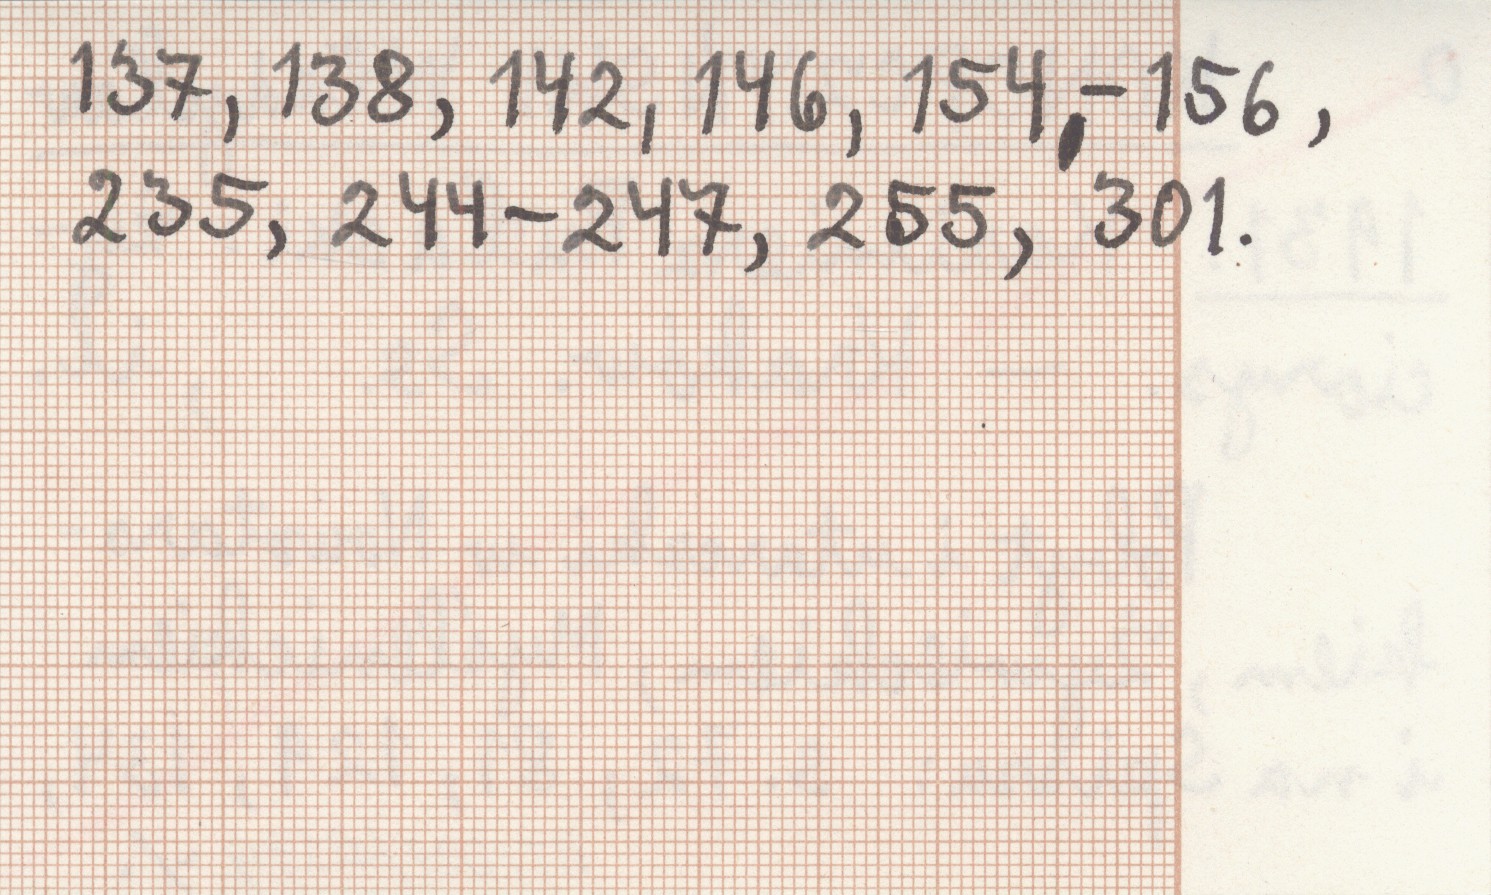 137, 138, 142, 146, 154,-156,
235, 244-247, 255, 301.